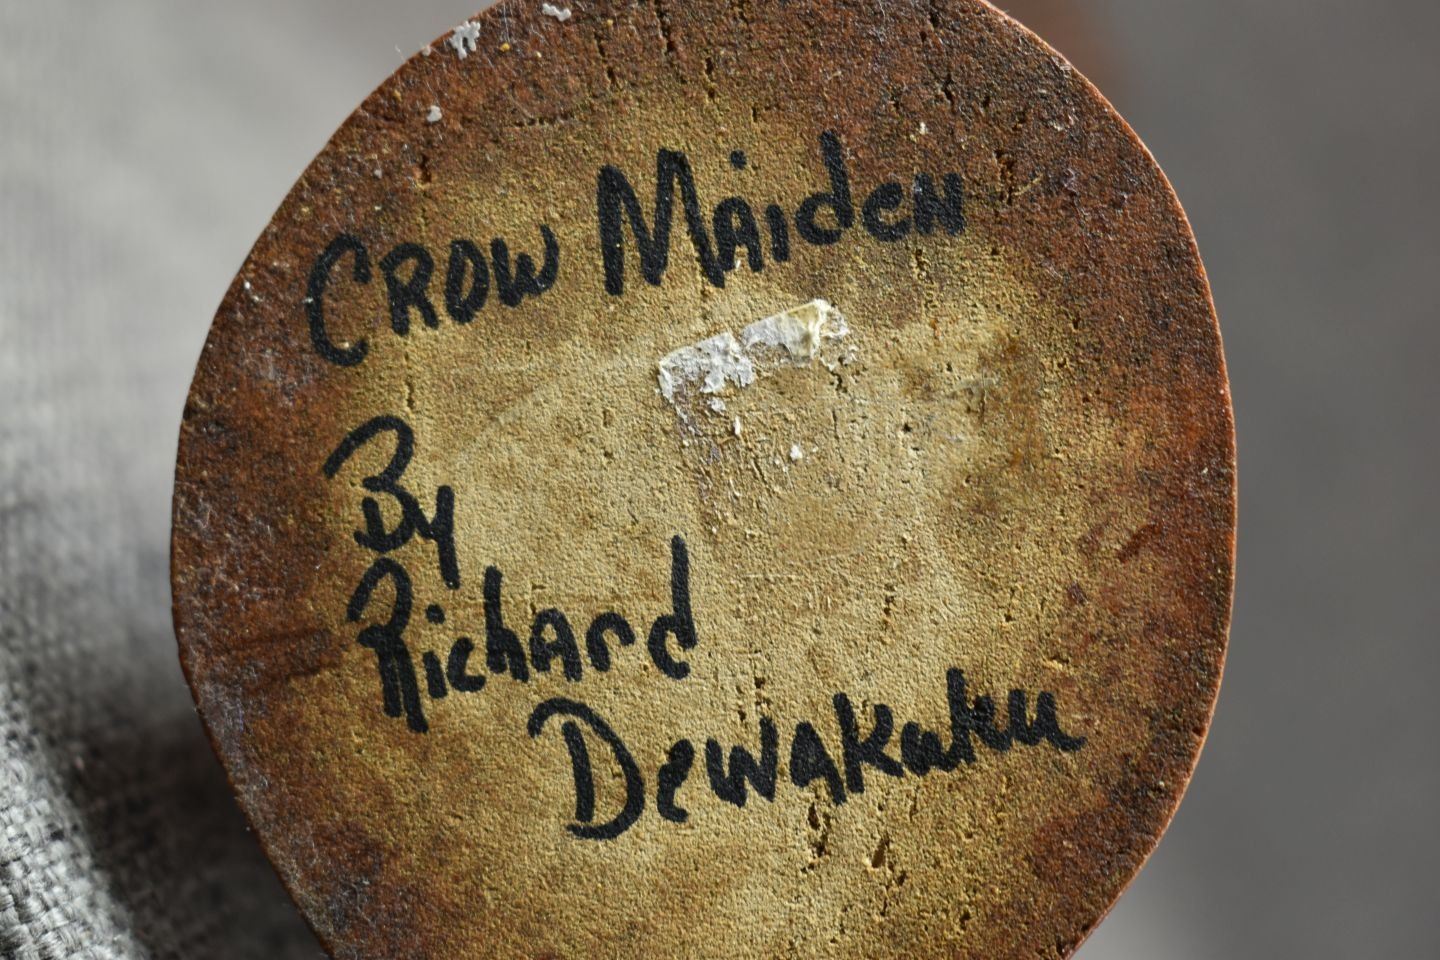 Crow Maiden
By
Richard
Dewakuku